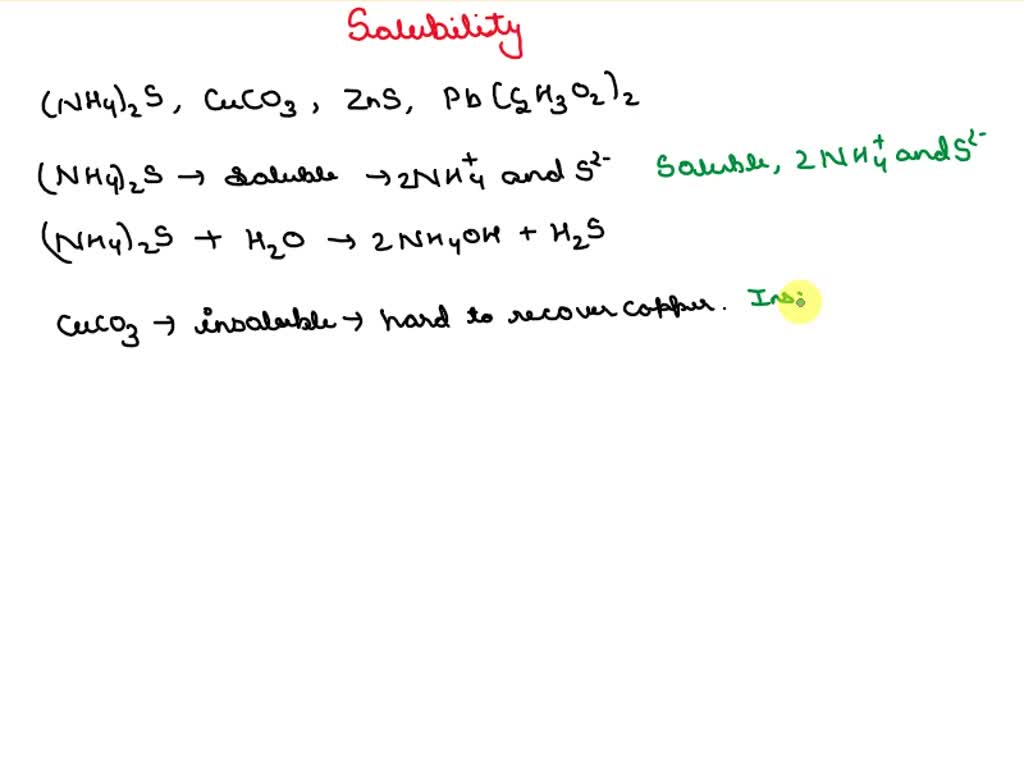 Solubility
(NH4)2S, CuCO3, ZnS, Pb(C2H3O2)2
(NH4)2S → soluble → 2NH4+ and S2- Soluble, 2NH4+ and S2-
(NH4)2S + H2O → 2NH4OH + H2S
CuCO3 → insoluble → hard to recover copper. Ins